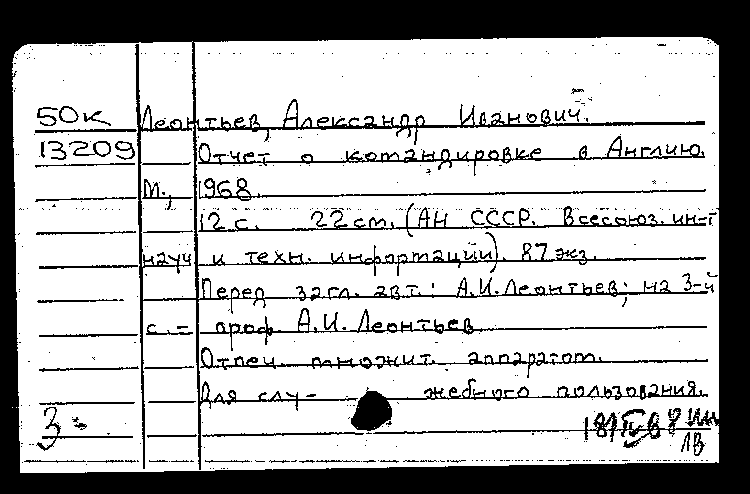 50к Леонтьев, Александр Иванович.
13209 Отчет о командировке в Англию.
М., 1968.
12 с. 22 см. (АН СССР. Всесоюз. ин-т
науч и техн. информации). 87 экз.
Перед загл. авт.: А.И. Леонтьев; на 3-й
с. = проф. А.И. Леонтьев.
Отпеч. множит. аппаратом.
Для слу- жебного пользования.
3